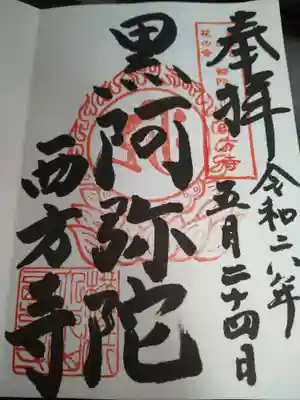 奉拝
令和六年
五月二十四日
黒阿弥陀
西方寺